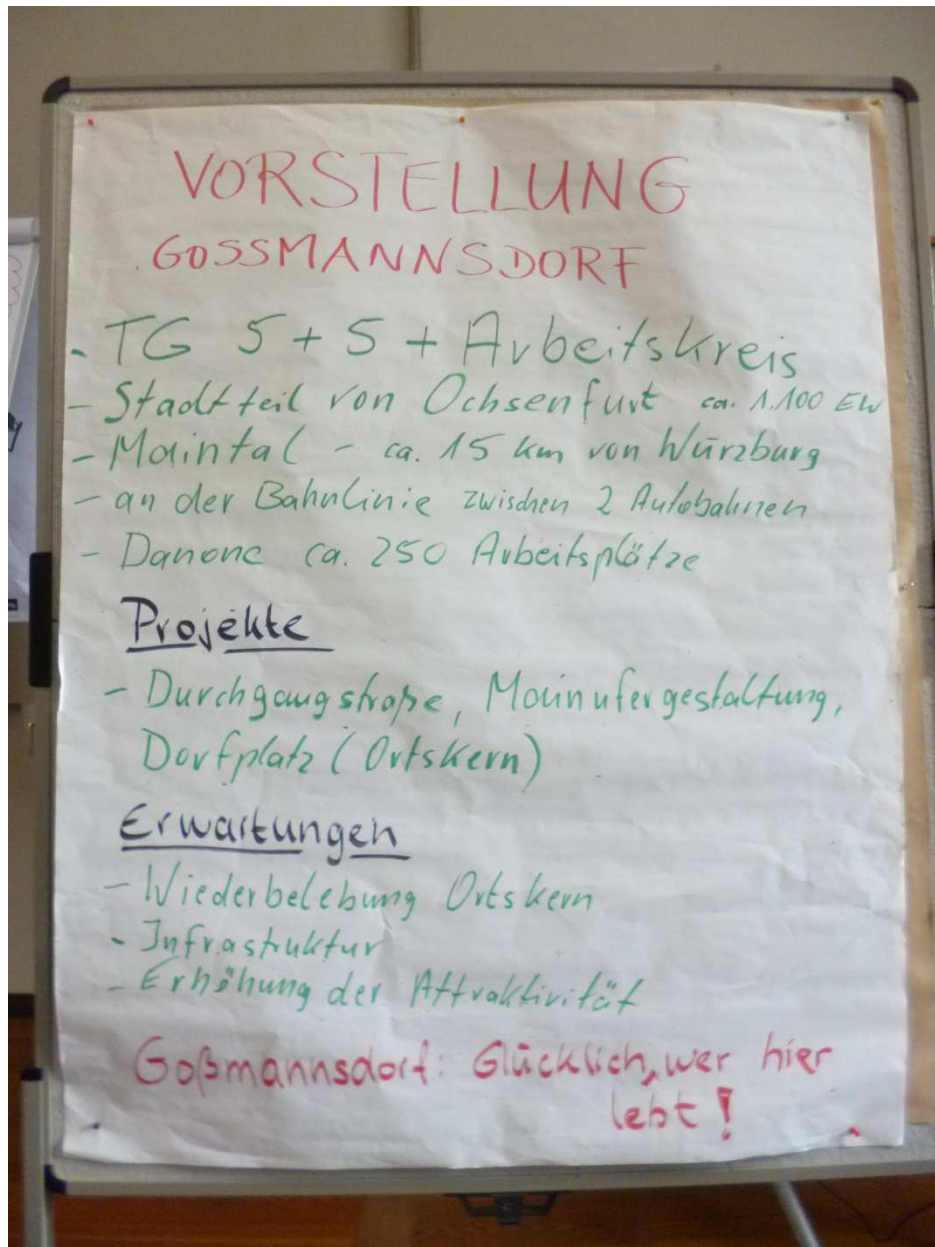 VORSTELLUNG
GOSSMANNSDORF
- TG 5 + 5 + Arbeitskreis
- Stadtteil von Ochsenfurt ca. 1.100 EW
- Maintal - ca. 15 km von Würzburg
- an der Bahnlinie zwischen 2 Autobahnen
- Danone ca. 250 Arbeitsplätze
Projekte
- Durchgangstraße, Mainufergestaltung,
Dorfplatz (Ortskern)
Erwartungen
- Wiederbelebung Ortskern
- Infrastruktur
- Erhöhung der Attraktivität
Goßmannsdorf: Glücklich, wer hier
lebt!